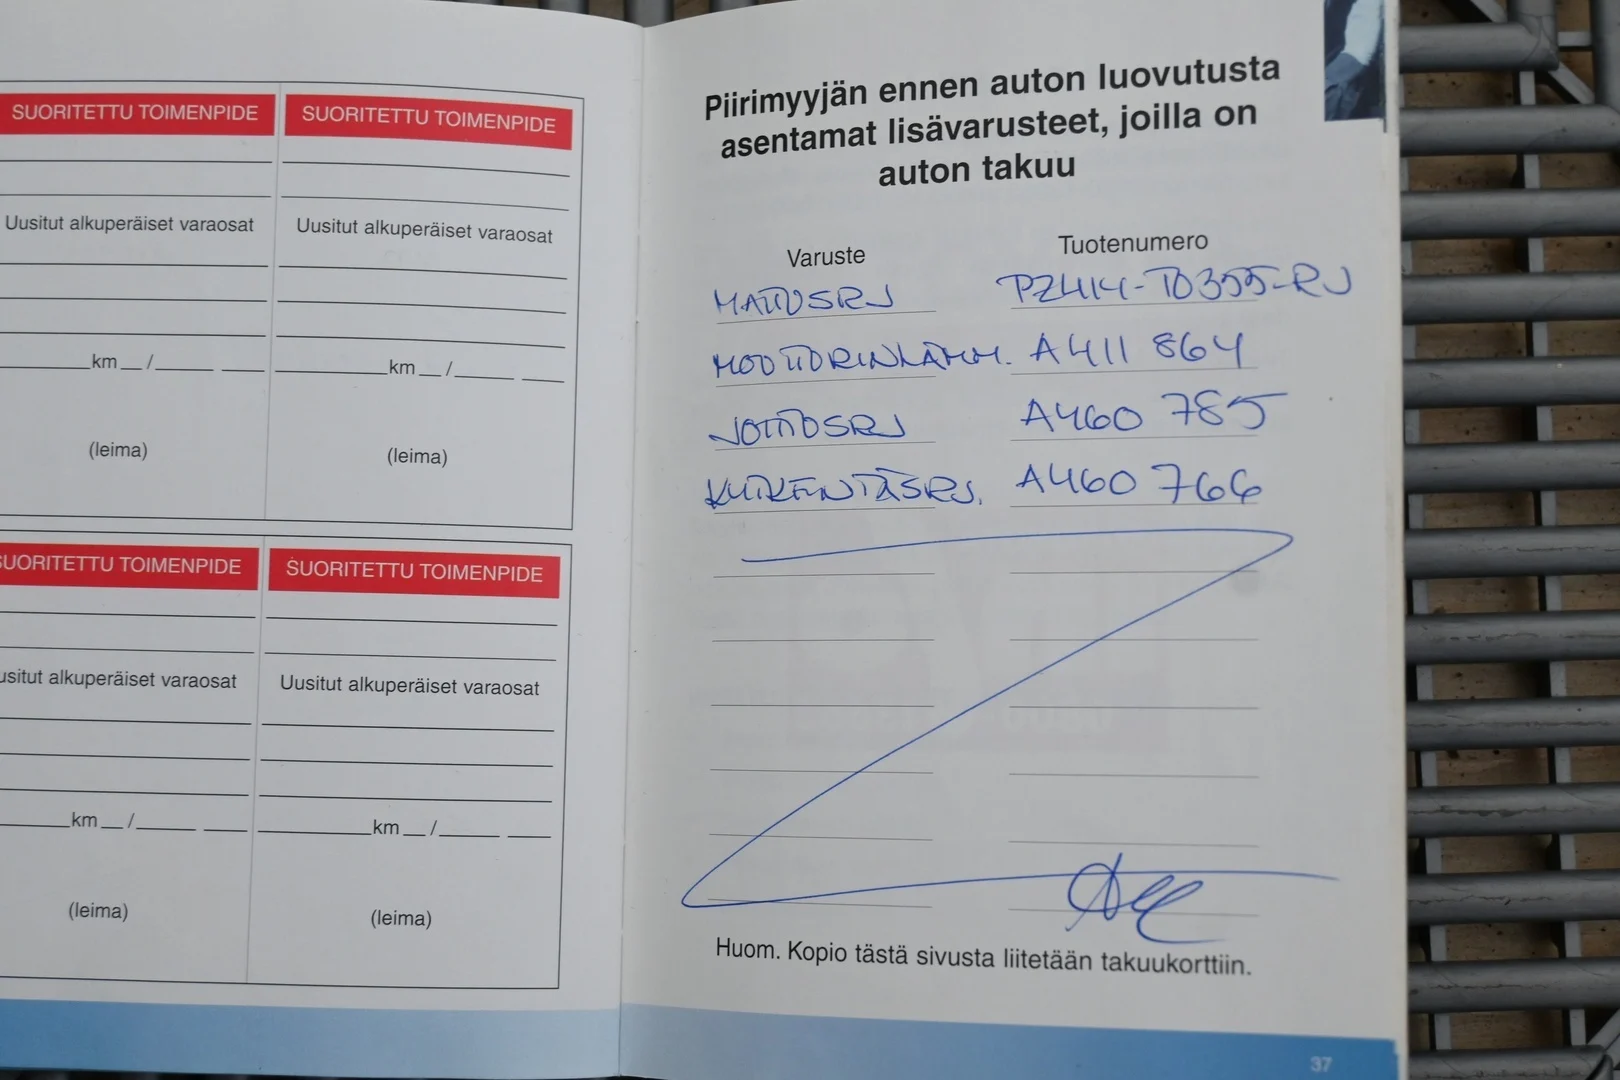 SUORITETTU TOIMENPIDE
SUORITETTU TOIMENPIDE
Uusitut alkuperäiset varaosat
Uusitut alkuperäiset varaosat
km __ /
km __ /
(leima)
(leima)
SUORITETTU TOIMENPIDE
SUORITETTU TOIMENPIDE
usitut alkuperäiset varaosat
Uusitut alkuperäiset varaosat
km __ /
km __ /
(leima)
(leima)
Piirimyyjän ennen auton luovutusta
asentamat lisävarusteet, joilla on
auton takuu
Varuste Tuotenumero
MATTOSRJ PZ414-T0355-RJ
MOOTTORINLÄMM. A411 864
JOHTOSRJ A460 785
KIIKENTÄSRJ. A460 766
Huom. Kopio tästä sivusta liitetään takuukorttiin.
37